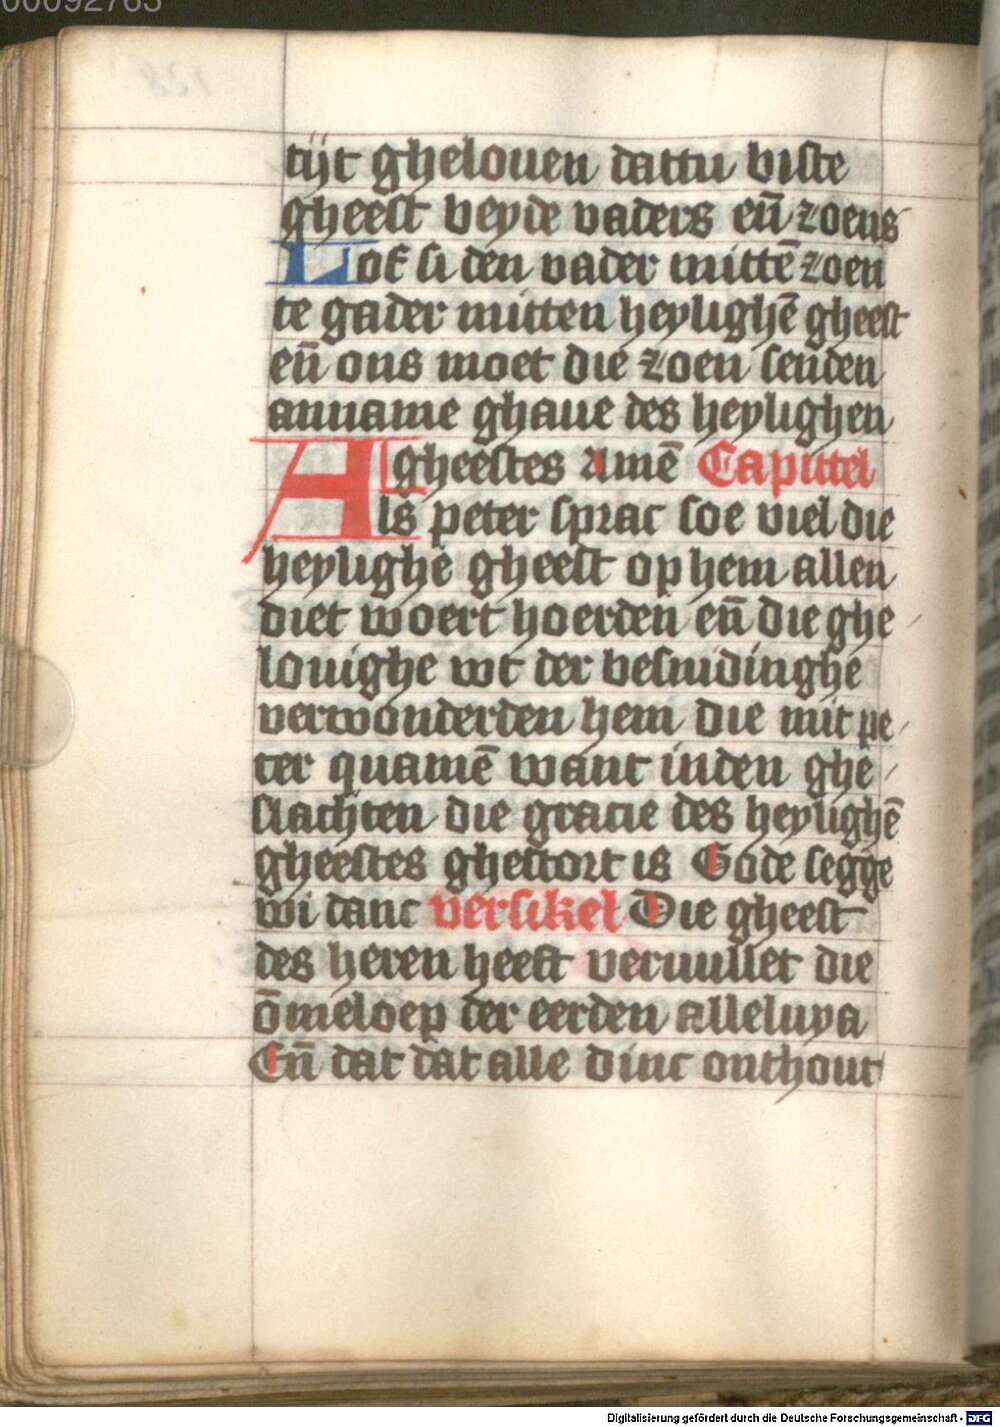 00092763
tijt ghelouen dattu biste
gheest beyde vaders en̄ zoens
Lof si den vader mittē zoen
te gader mitten heylighē gheest
en̄ ons moet die zoen senden
anname ghaue des heylighen
gheestes Amē Capittel
Als peter sprac soe viel die
heylighe gheest op hem allen
diet woert hoerden en̄ die ghe
louighe wt der besnidinghe
verwonderden hem die mit pe
ter quamē want inden ghe
slachten die gracie des heylighē
gheestes ghestort is Gode segge
wi danc versikel Die gheest
des heren heeft veruullet die
ōmeloep der eerden alleluya
En̄ dat dat alle dinc onthout
Digitalisierung gefördert durch die Deutsche Forschungsgemeinschaft - DFG